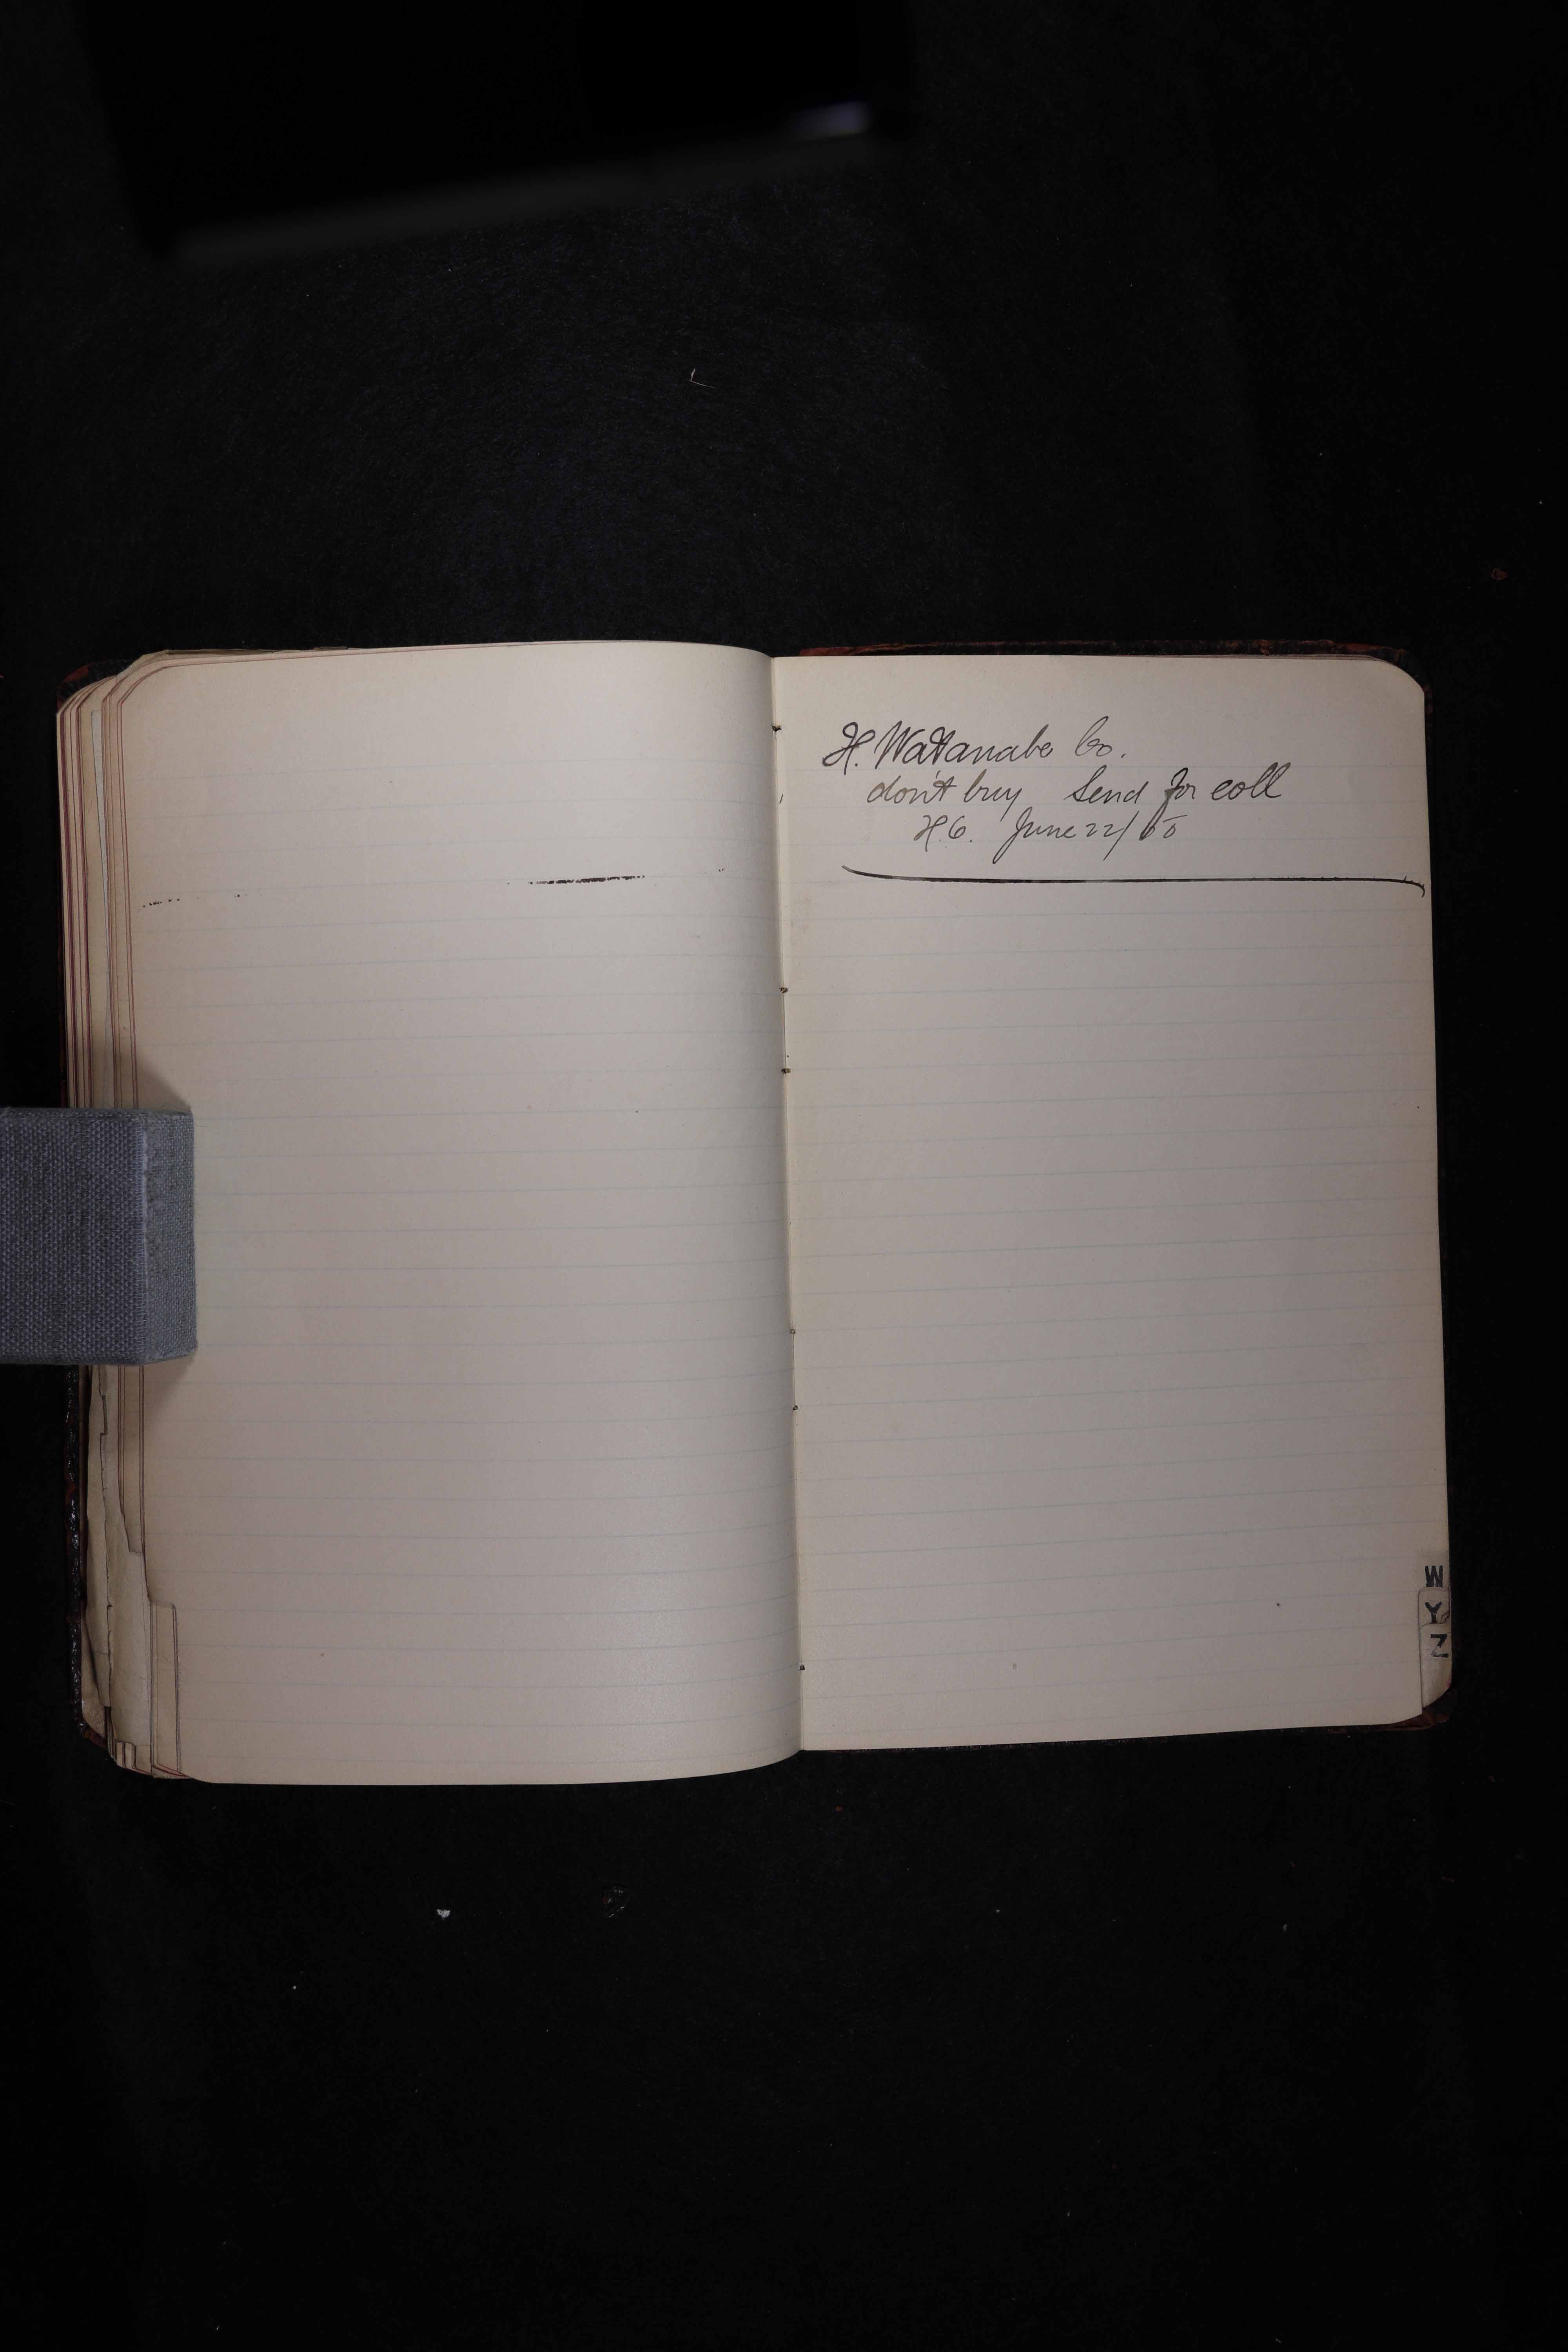 H. Watanabe Co.
don't buy Send for coll
H.C. June 22/05
W
Y
Z